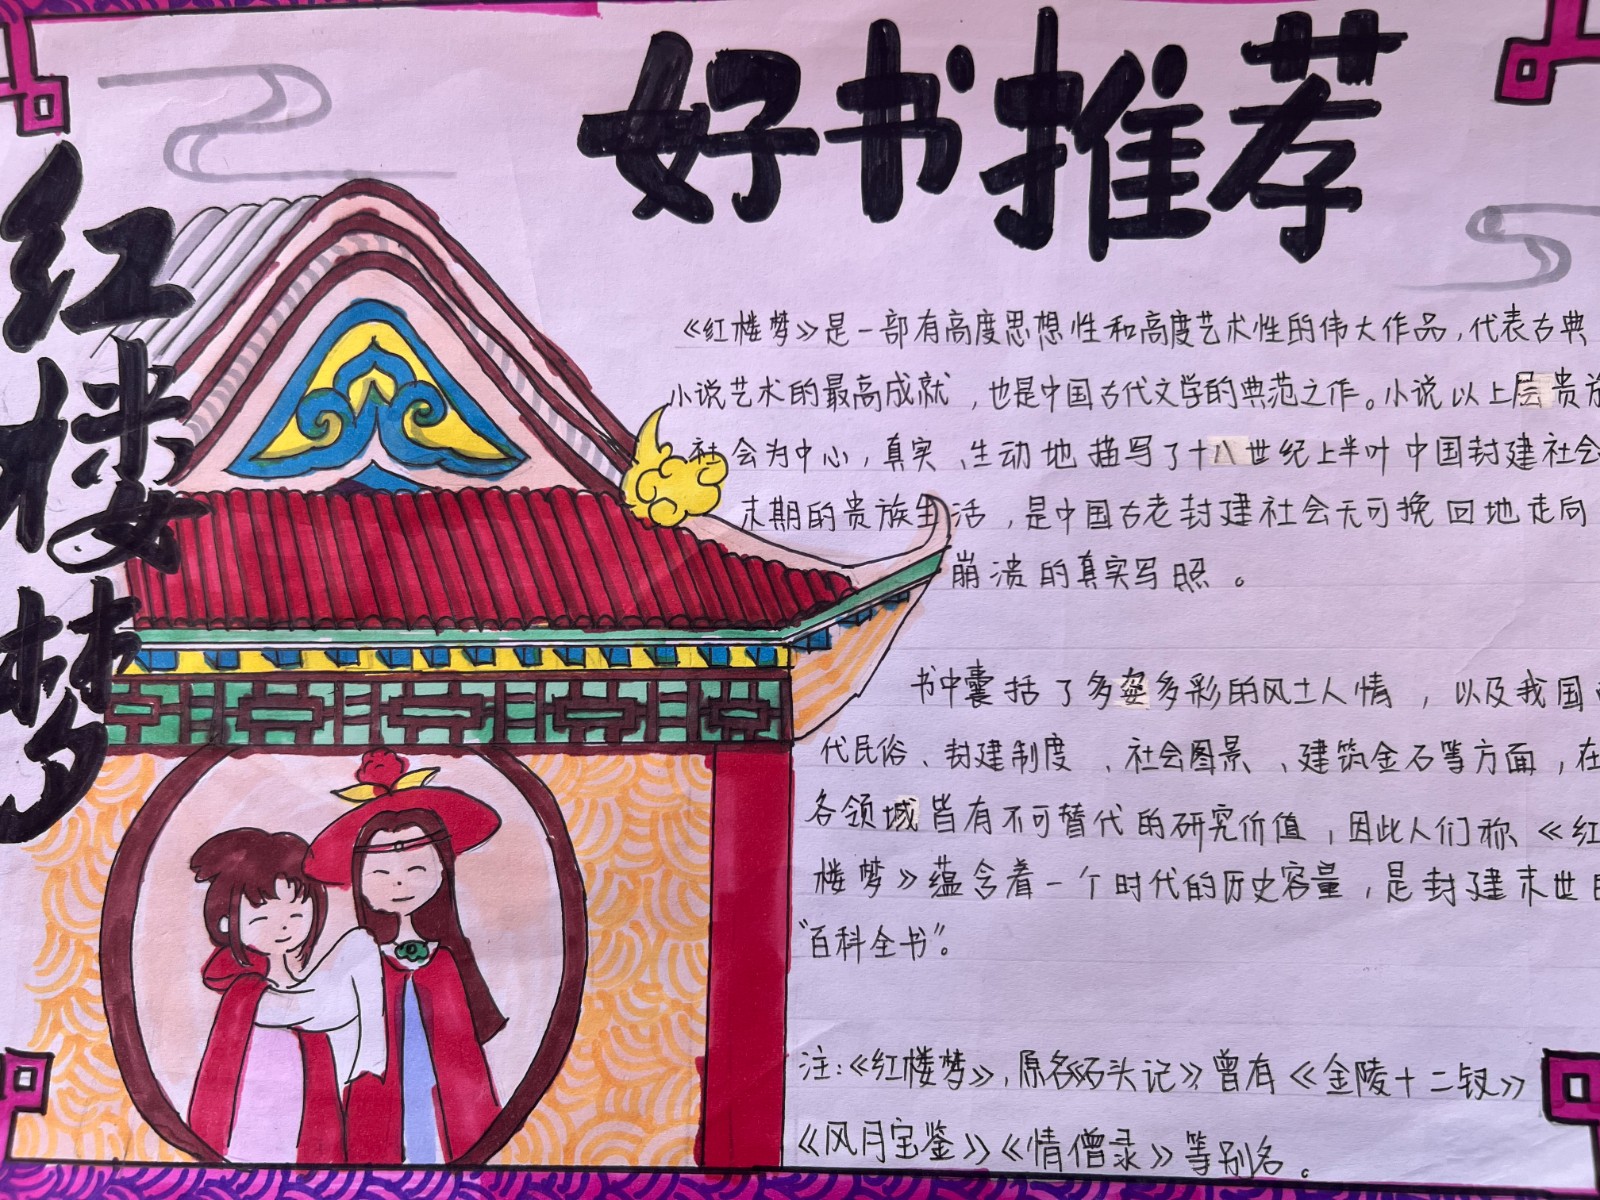 好书推荐
红楼梦
《红楼梦》是一部有高度思想性和高度艺术性的伟大作品,代表古典
小说艺术的最高成就,也是中国古代文学的典范之作。小说以上层贵族
社会为中心,真实、生动地描写了十八世纪上半叶中国封建社会
末期的贵族生活,是中国古老封建社会无可挽回地走向
崩溃的真实写照。
书中囊括了多姿多彩的风土人情,以及我国
代民俗、封建制度、社会图景、建筑金石等方面,在
各领域皆有不可替代的研究价值,因此人们称《红
楼梦》蕴含着一个时代的历史容量,是封建末世
“百科全书”。
注:《红楼梦》,原名《石头记》,曾有《金陵十二钗》
《风月宝鉴》《情僧录》等别名。